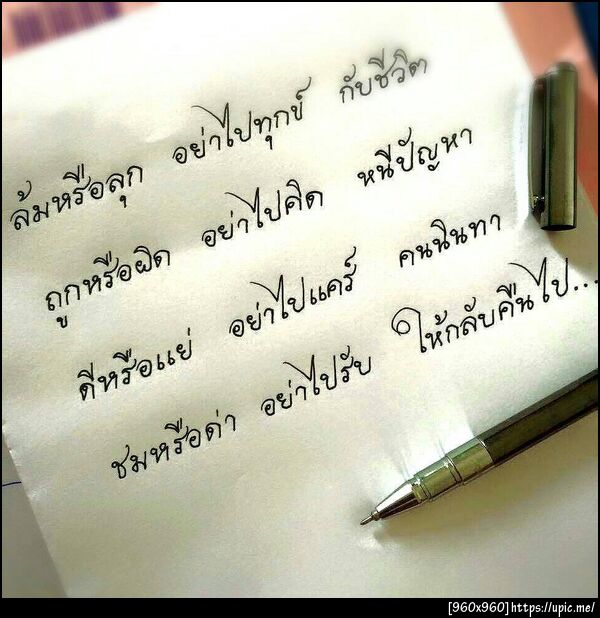 ล้มหรือลุก อย่าไปทุกข์ กับชีวิต
ถูกหรือผิด อย่าไปคิด หนีปัญหา
ดีหรือแย่ อย่าไปแคร์ คนนินทา
ชมหรือด่า อย่าไปรับ ให้กลับคืนไป...
[960x960]https://upic.me/